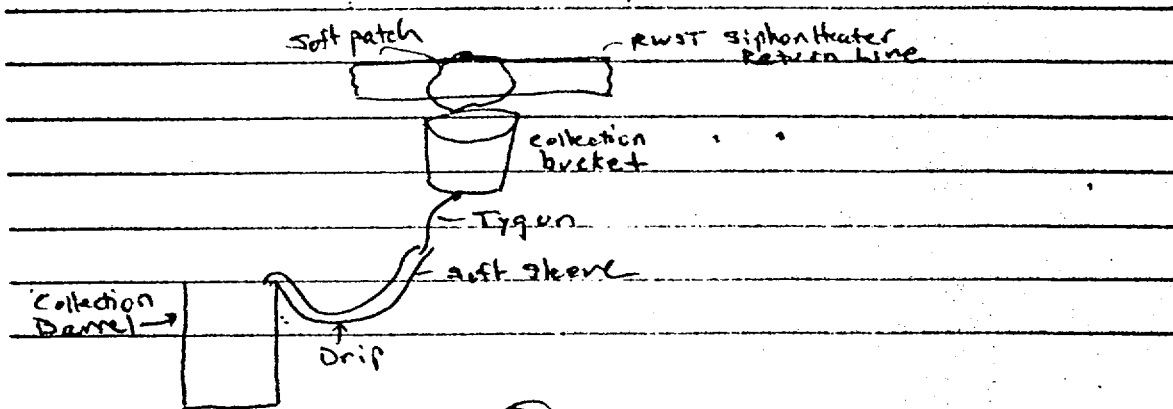 Soft patch
RWST Siphon Heater
Return Line
Collection
bucket
Tygun
soft sleeve
Collection
Barrel
Drip